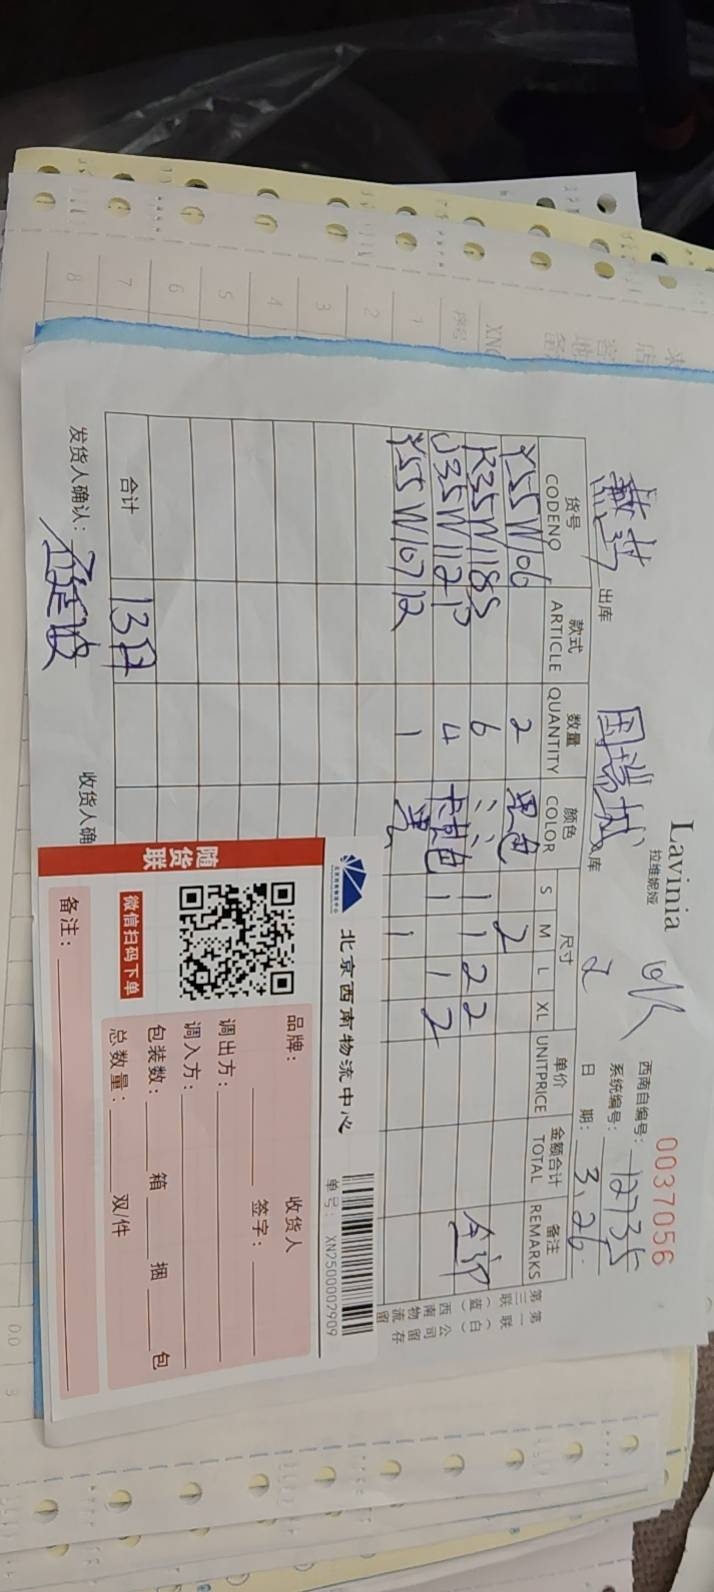 Lavinia
拉维妮娅
0037056
西南自编号: 12735
系统编号:
日 期: 3.26
燕莎 出库 国瑞城 入库
货号 CODENO 款式 ARTICLE 数量 QUANTITY 颜色 COLOR 尺寸 S M L XL 单价 UNITPRICE 金额合计 TOTAL 备注 REMARKS
Y55W106 2 黑色 2
R35W118S 6 〃 1 1 2 2 全部
J35W112P 4 卡其色 1 1 2
Y55W10712 1 黑 1
合计 13件
发货人确认:
收货人确
第一联(白)公司留存
第三联(蓝)西南物流留
北京西南物流中心
单号: XN2500002909
随货联
微信扫码下单
品牌:
收货人签字:
调出方:
调入方:
包装数: 箱 捆 包
总数量: 双/件
备注:
序号
1
2
3
4
5
6
7
8